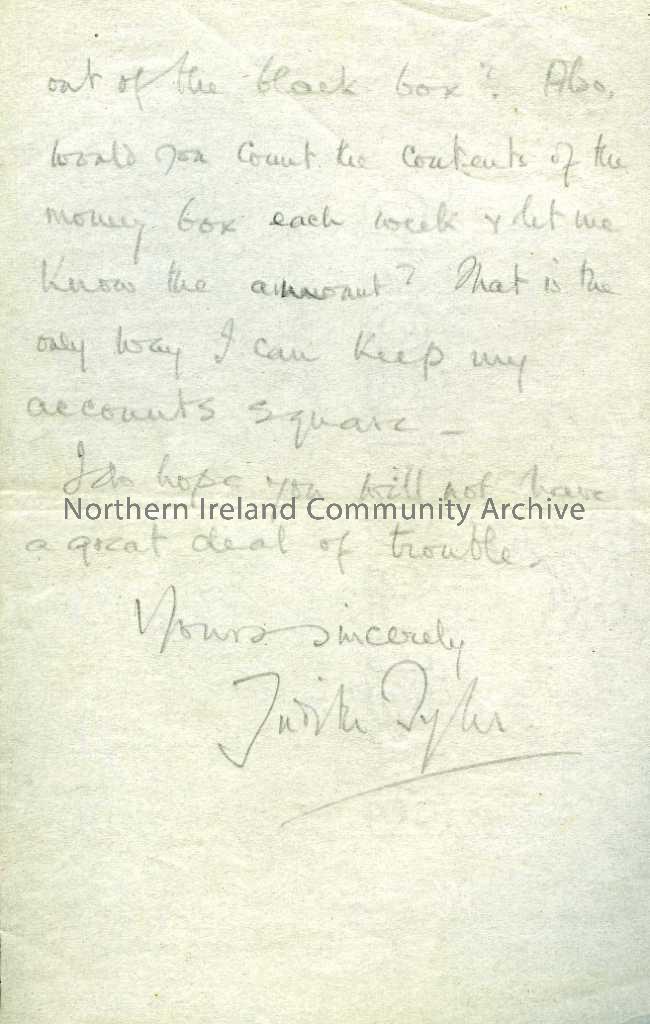 out of the black box? Also,
would you count the contents of the
money box each week & let me
know the amount? That is the
only way I can keep my
accounts square –
I do hope you will not have
Northern Ireland Community Archive
a great deal of trouble.
Yours sincerely
Judith Tyler